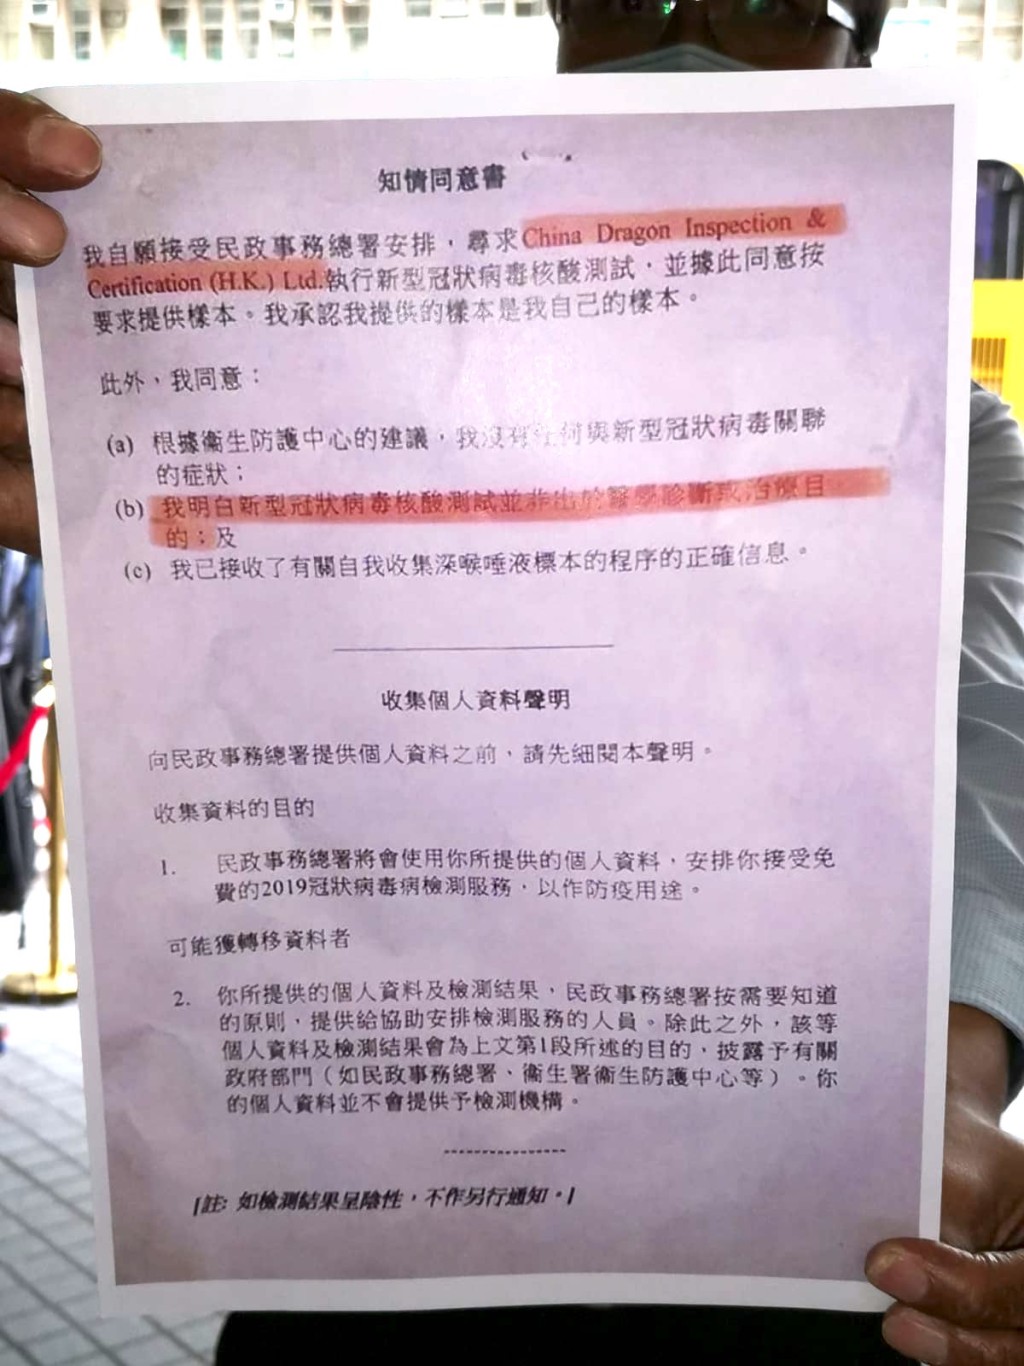 知情同意書
我自願接受民政事務總署安排，尋求China Dragon Inspection &
Certification (H.K.) Ltd.執行新型冠狀病毒核酸測試，並據此同意按
要求提供樣本。我承認我提供的樣本是我自己的樣本。
此外，我同意：
(a) 根據衞生防護中心的建議，我沒有任何與新型冠狀病毒關聯
的症狀；
(b) 我明白新型冠狀病毒核酸測試並非出於醫學診斷或治療目
的；及
(c) 我已接收了有關自我收集深喉唾液標本的程序的正確信息。
收集個人資料聲明
向民政事務總署提供個人資料之前，請先細閱本聲明。
收集資料的目的
1. 民政事務總署將會使用你所提供的個人資料，安排你接受免
費的2019冠狀病毒病檢測服務，以作防疫用途。
可能獲轉移資料者
2. 你所提供的個人資料及檢測結果，民政事務總署按需要知道
的原則，提供給協助安排檢測服務的人員。除此之外，該等
個人資料及檢測結果會為上文第1段所述的目的，披露予有關
政府部門（如民政事務總署、衞生署衞生防護中心等）。你
的個人資料並不會提供予檢測機構。
[註: 如檢測結果呈陰性，不作另行通知。]